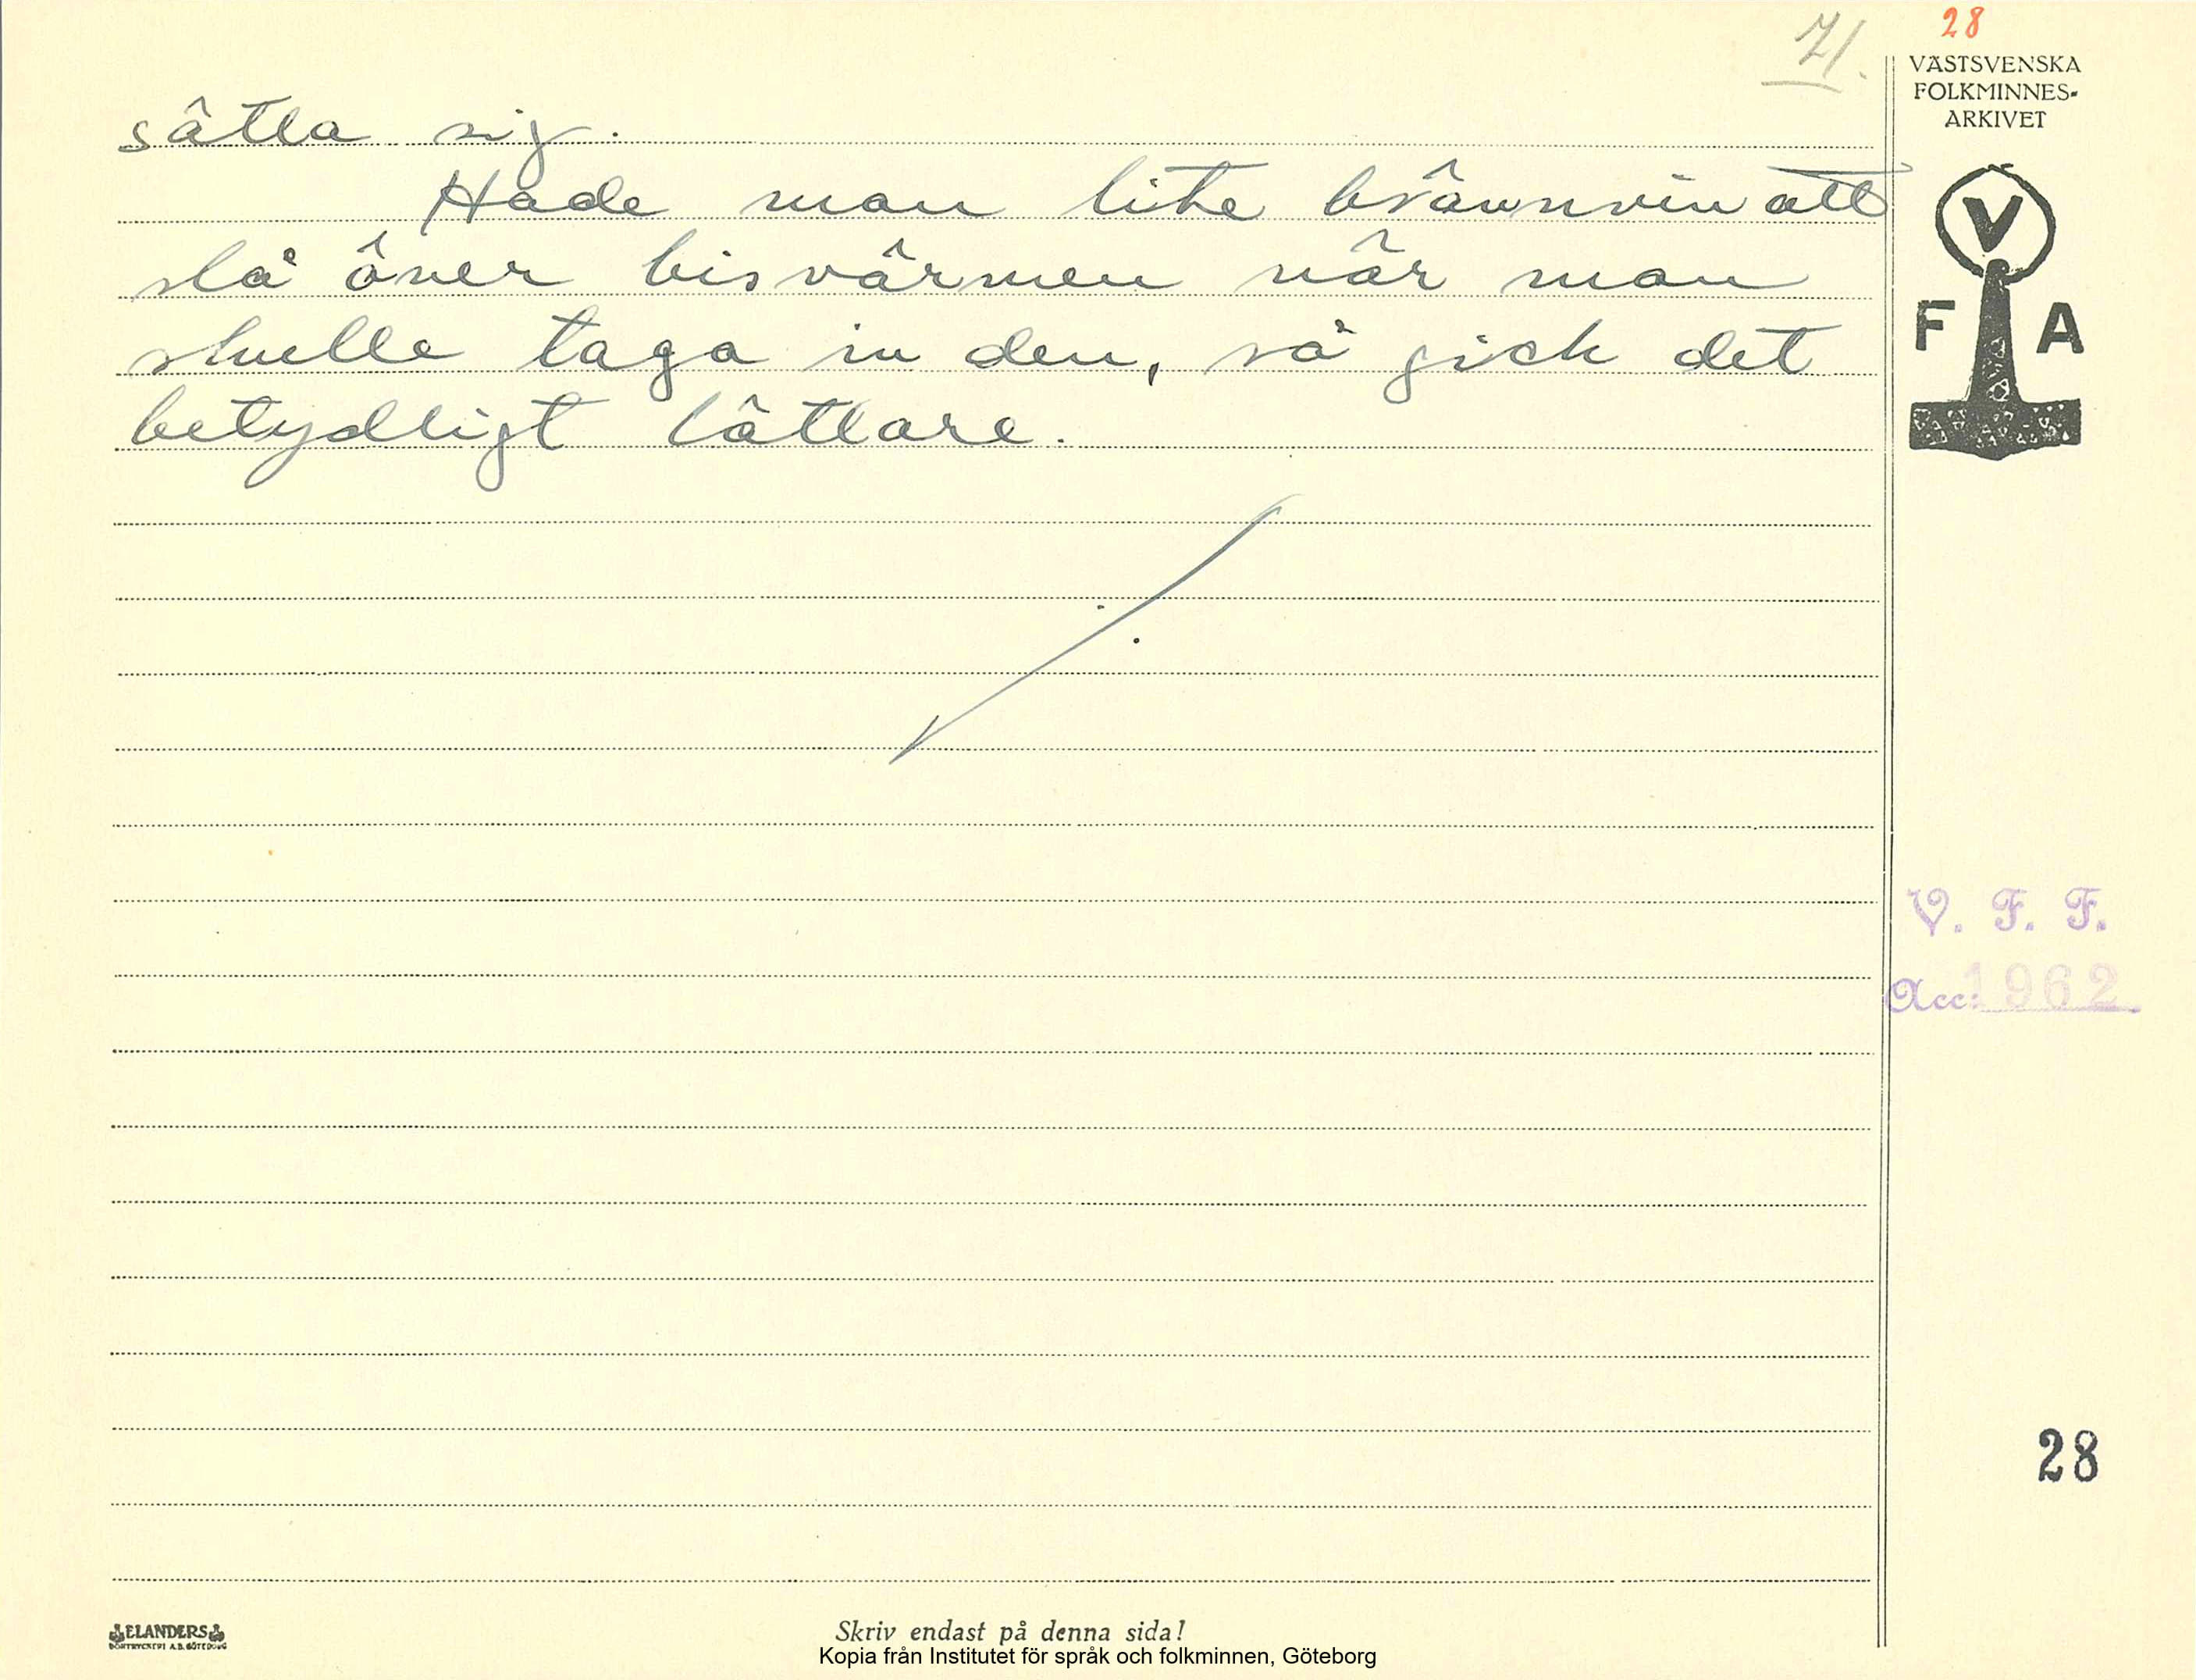 71.
28
VÄSTSVENSKA
FOLKMINNES-
ARKIVET
sätta sig.
Hade man lite brännvin att
slå över bisvärmen när man
skulle taga in den, så gick det
betydligt lättare.
V
F A
V. F. F.
Acc: 1962
28
ELANDERS
BOKTRYCKERI A.B. GÖTEBORG
Skriv endast på denna sida!
Kopia från Institutet för språk och folkminnen, Göteborg